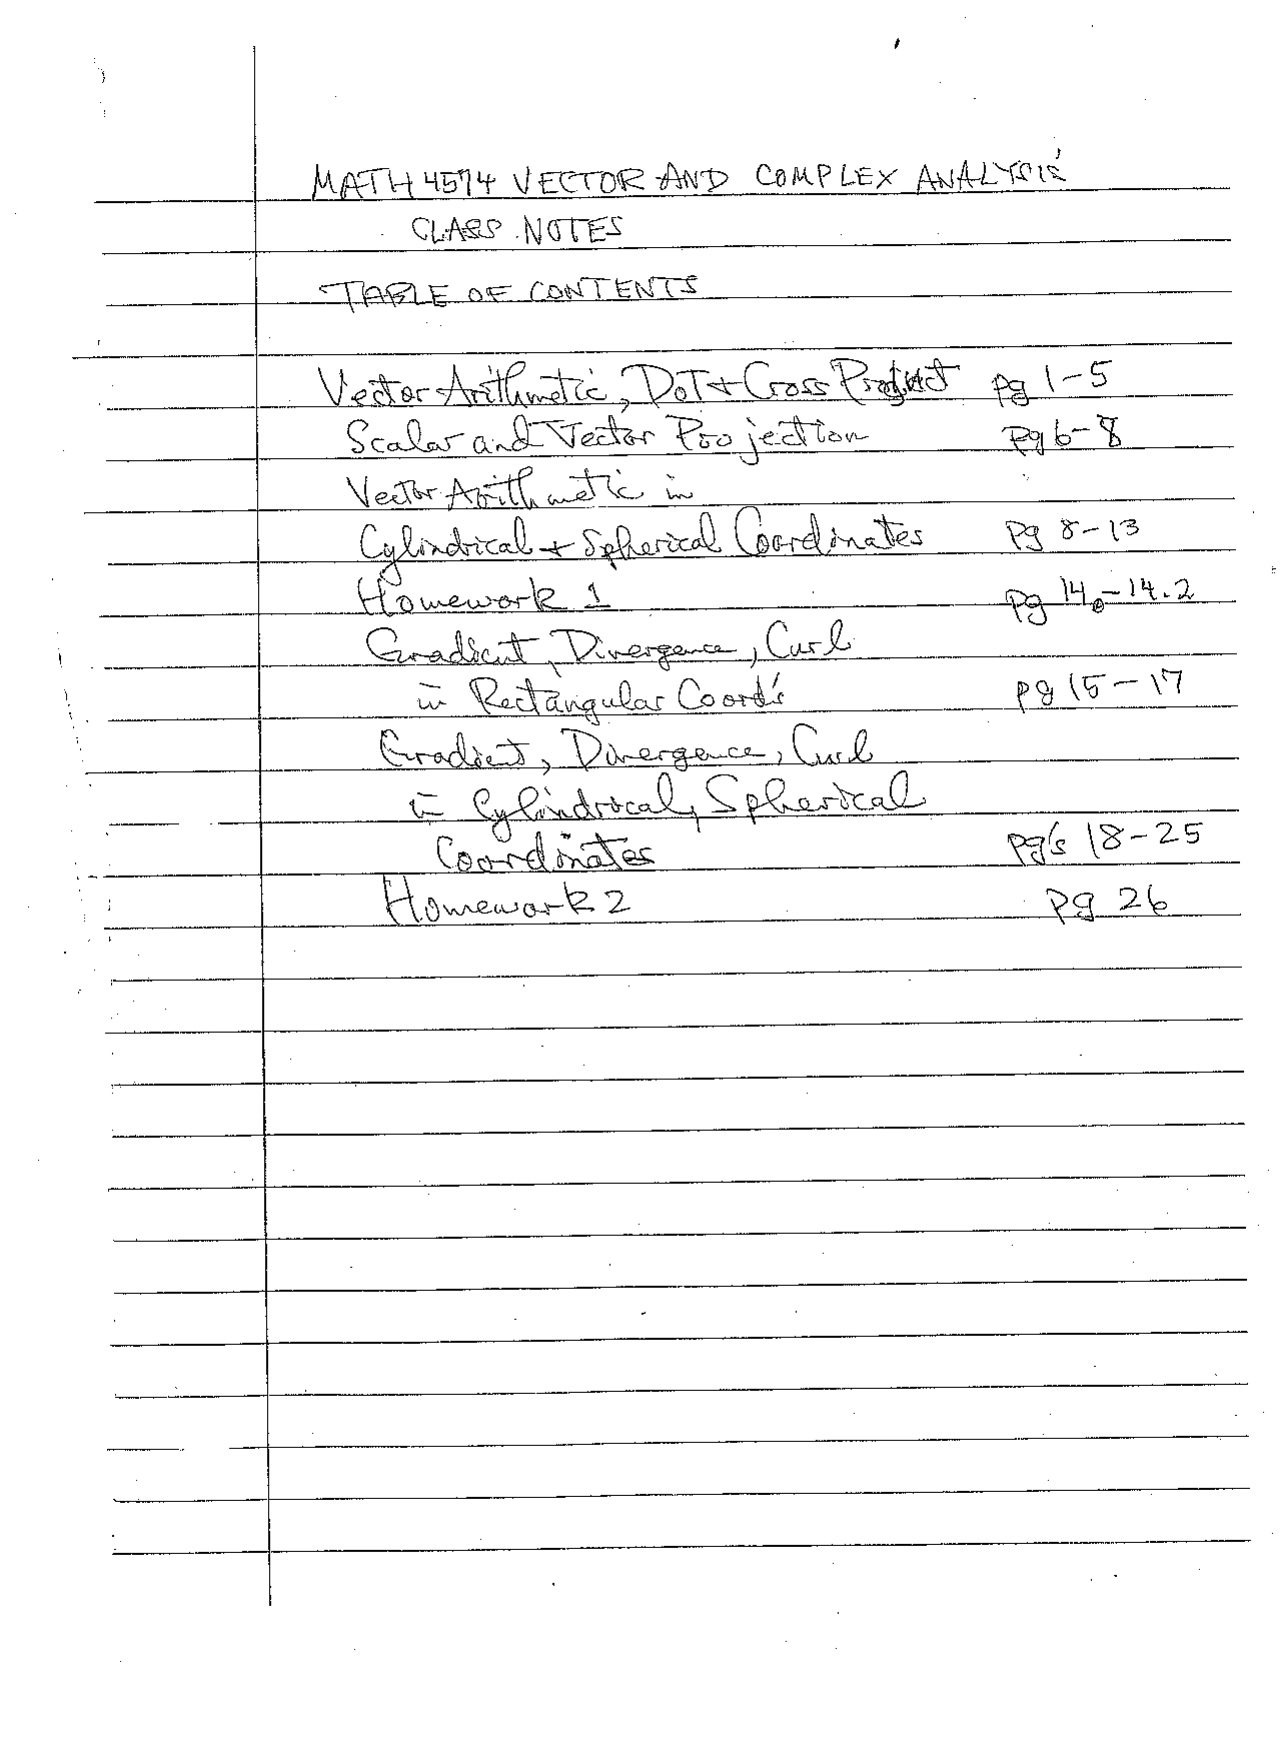 MATH 4574 VECTOR AND COMPLEX ANALYSIS
CLASS NOTES
TABLE OF CONTENTS
Vector Arithmetic, DoT + Cross Product pg 1-5
Scalar and Vector Projection pg 6-8
Vector Arithmetic in
Cylindrical + Spherical Coordinates pg 8-13
Homework 1 pg 14.0-14.2
Gradient, Divergence, Curl
in Rectangular Coord's pg 15-17
Gradient, Divergence, Curl
in Cylindrical, Spherical
Coordinates pg's 18-25
Homework 2 pg 26